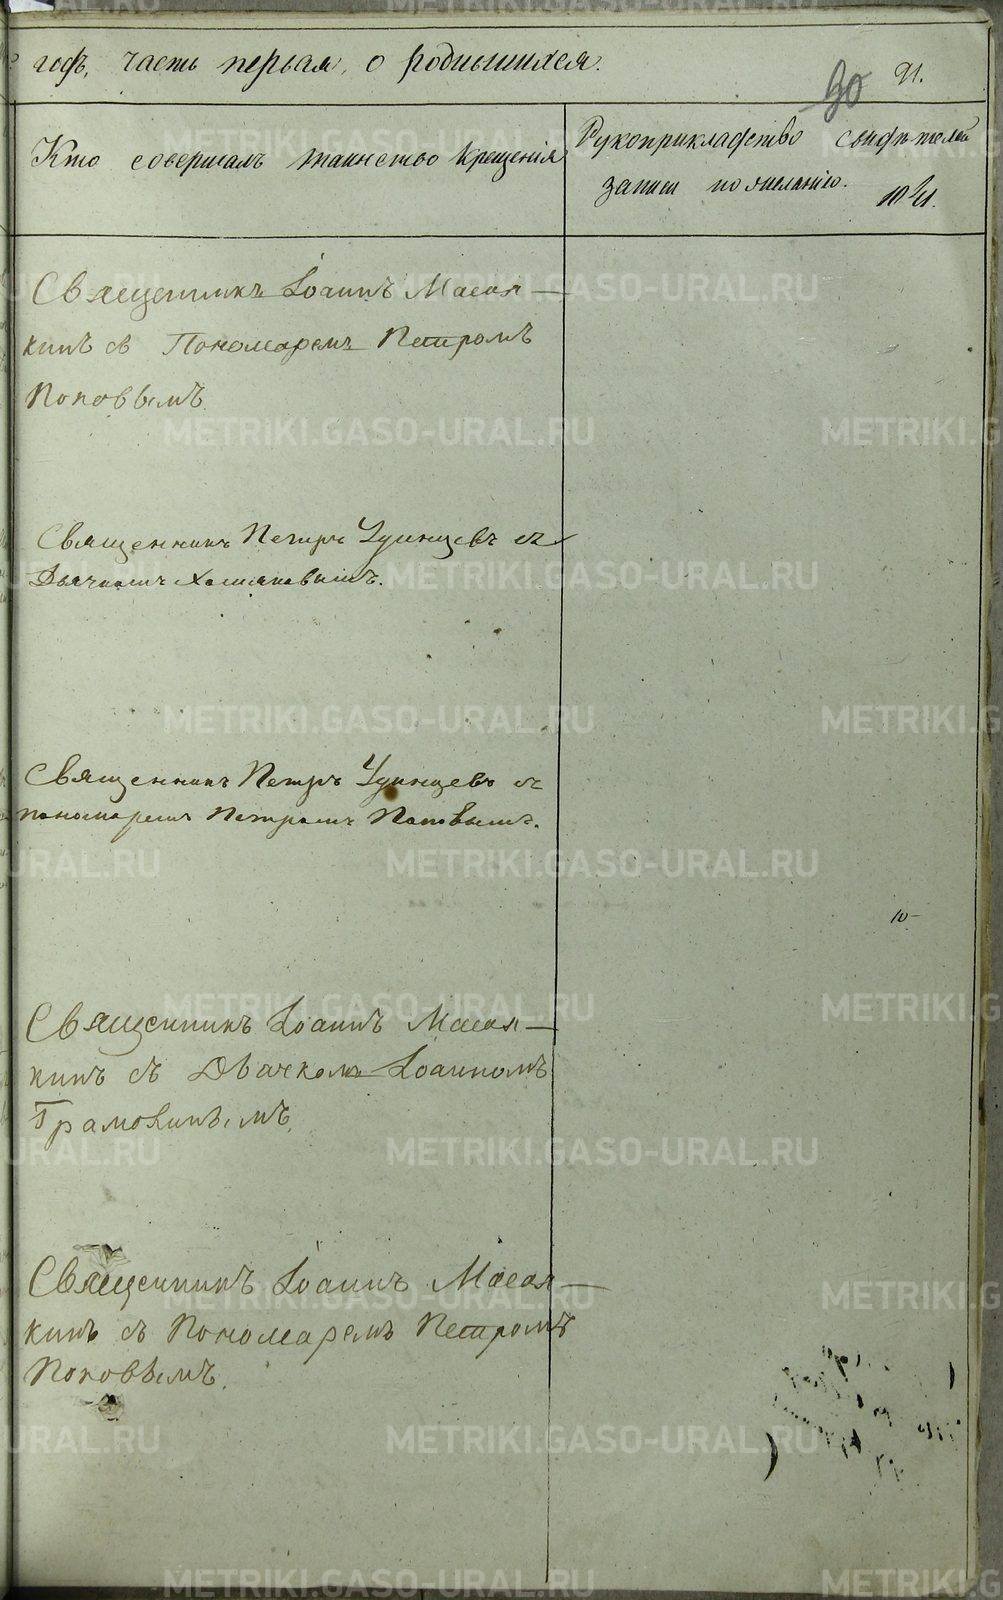 годъ, часть первая, о родившихся.
90 91.
Кто совершалъ таинство Крещенія
Рукоприкладство свидѣтелей
записи по желанію.
Священникъ Іоаннъ Масал-
кинъ съ Пономаремъ Петромъ
Поповымъ
Священникъ Петръ Удинцевъ съ
Дьячкомъ Хомяковымъ.
Священникъ Петръ Удинцевъ съ
пономаремъ Петромъ Поповымъ.
10
Священникъ Іоаннъ Масал-
кинъ съ Дьячкомъ Іоанномъ
Священникъ Іоаннъ Масал-
кинъ съ Пономаремъ Петромъ
Поповымъ.
METRIKI.GASO-URAL.RU